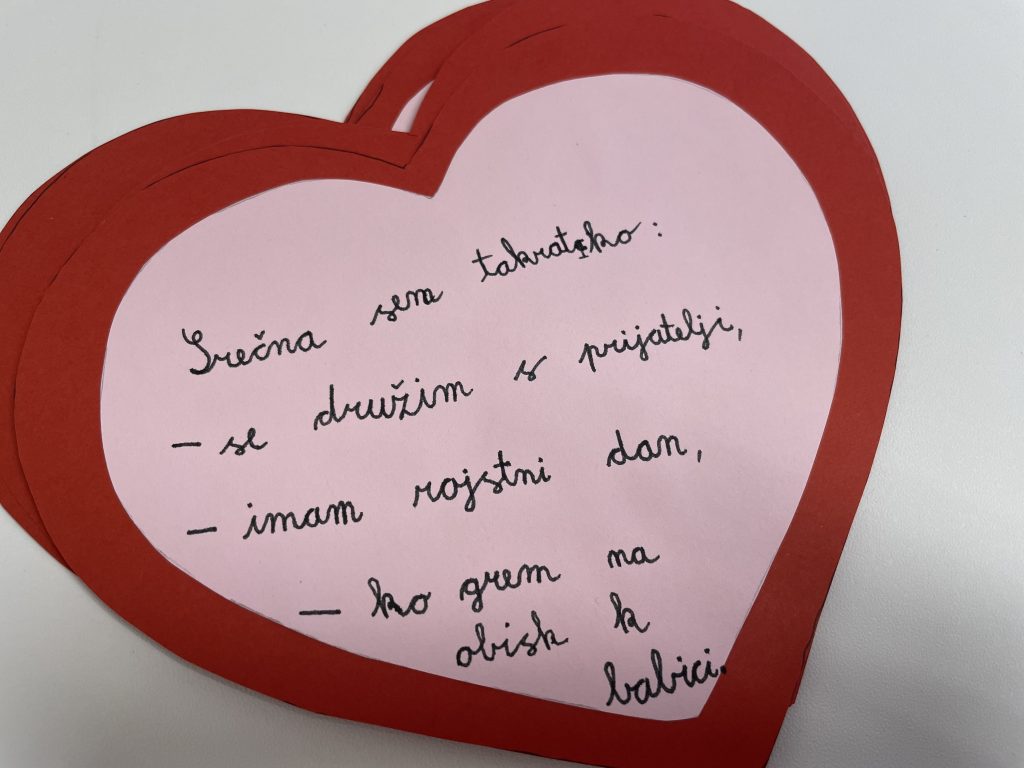 Srečna sem takrat,ko:
- se družim s prijatelji,
- imam rojstni dan,
- ko grem na
obisk k
babici.